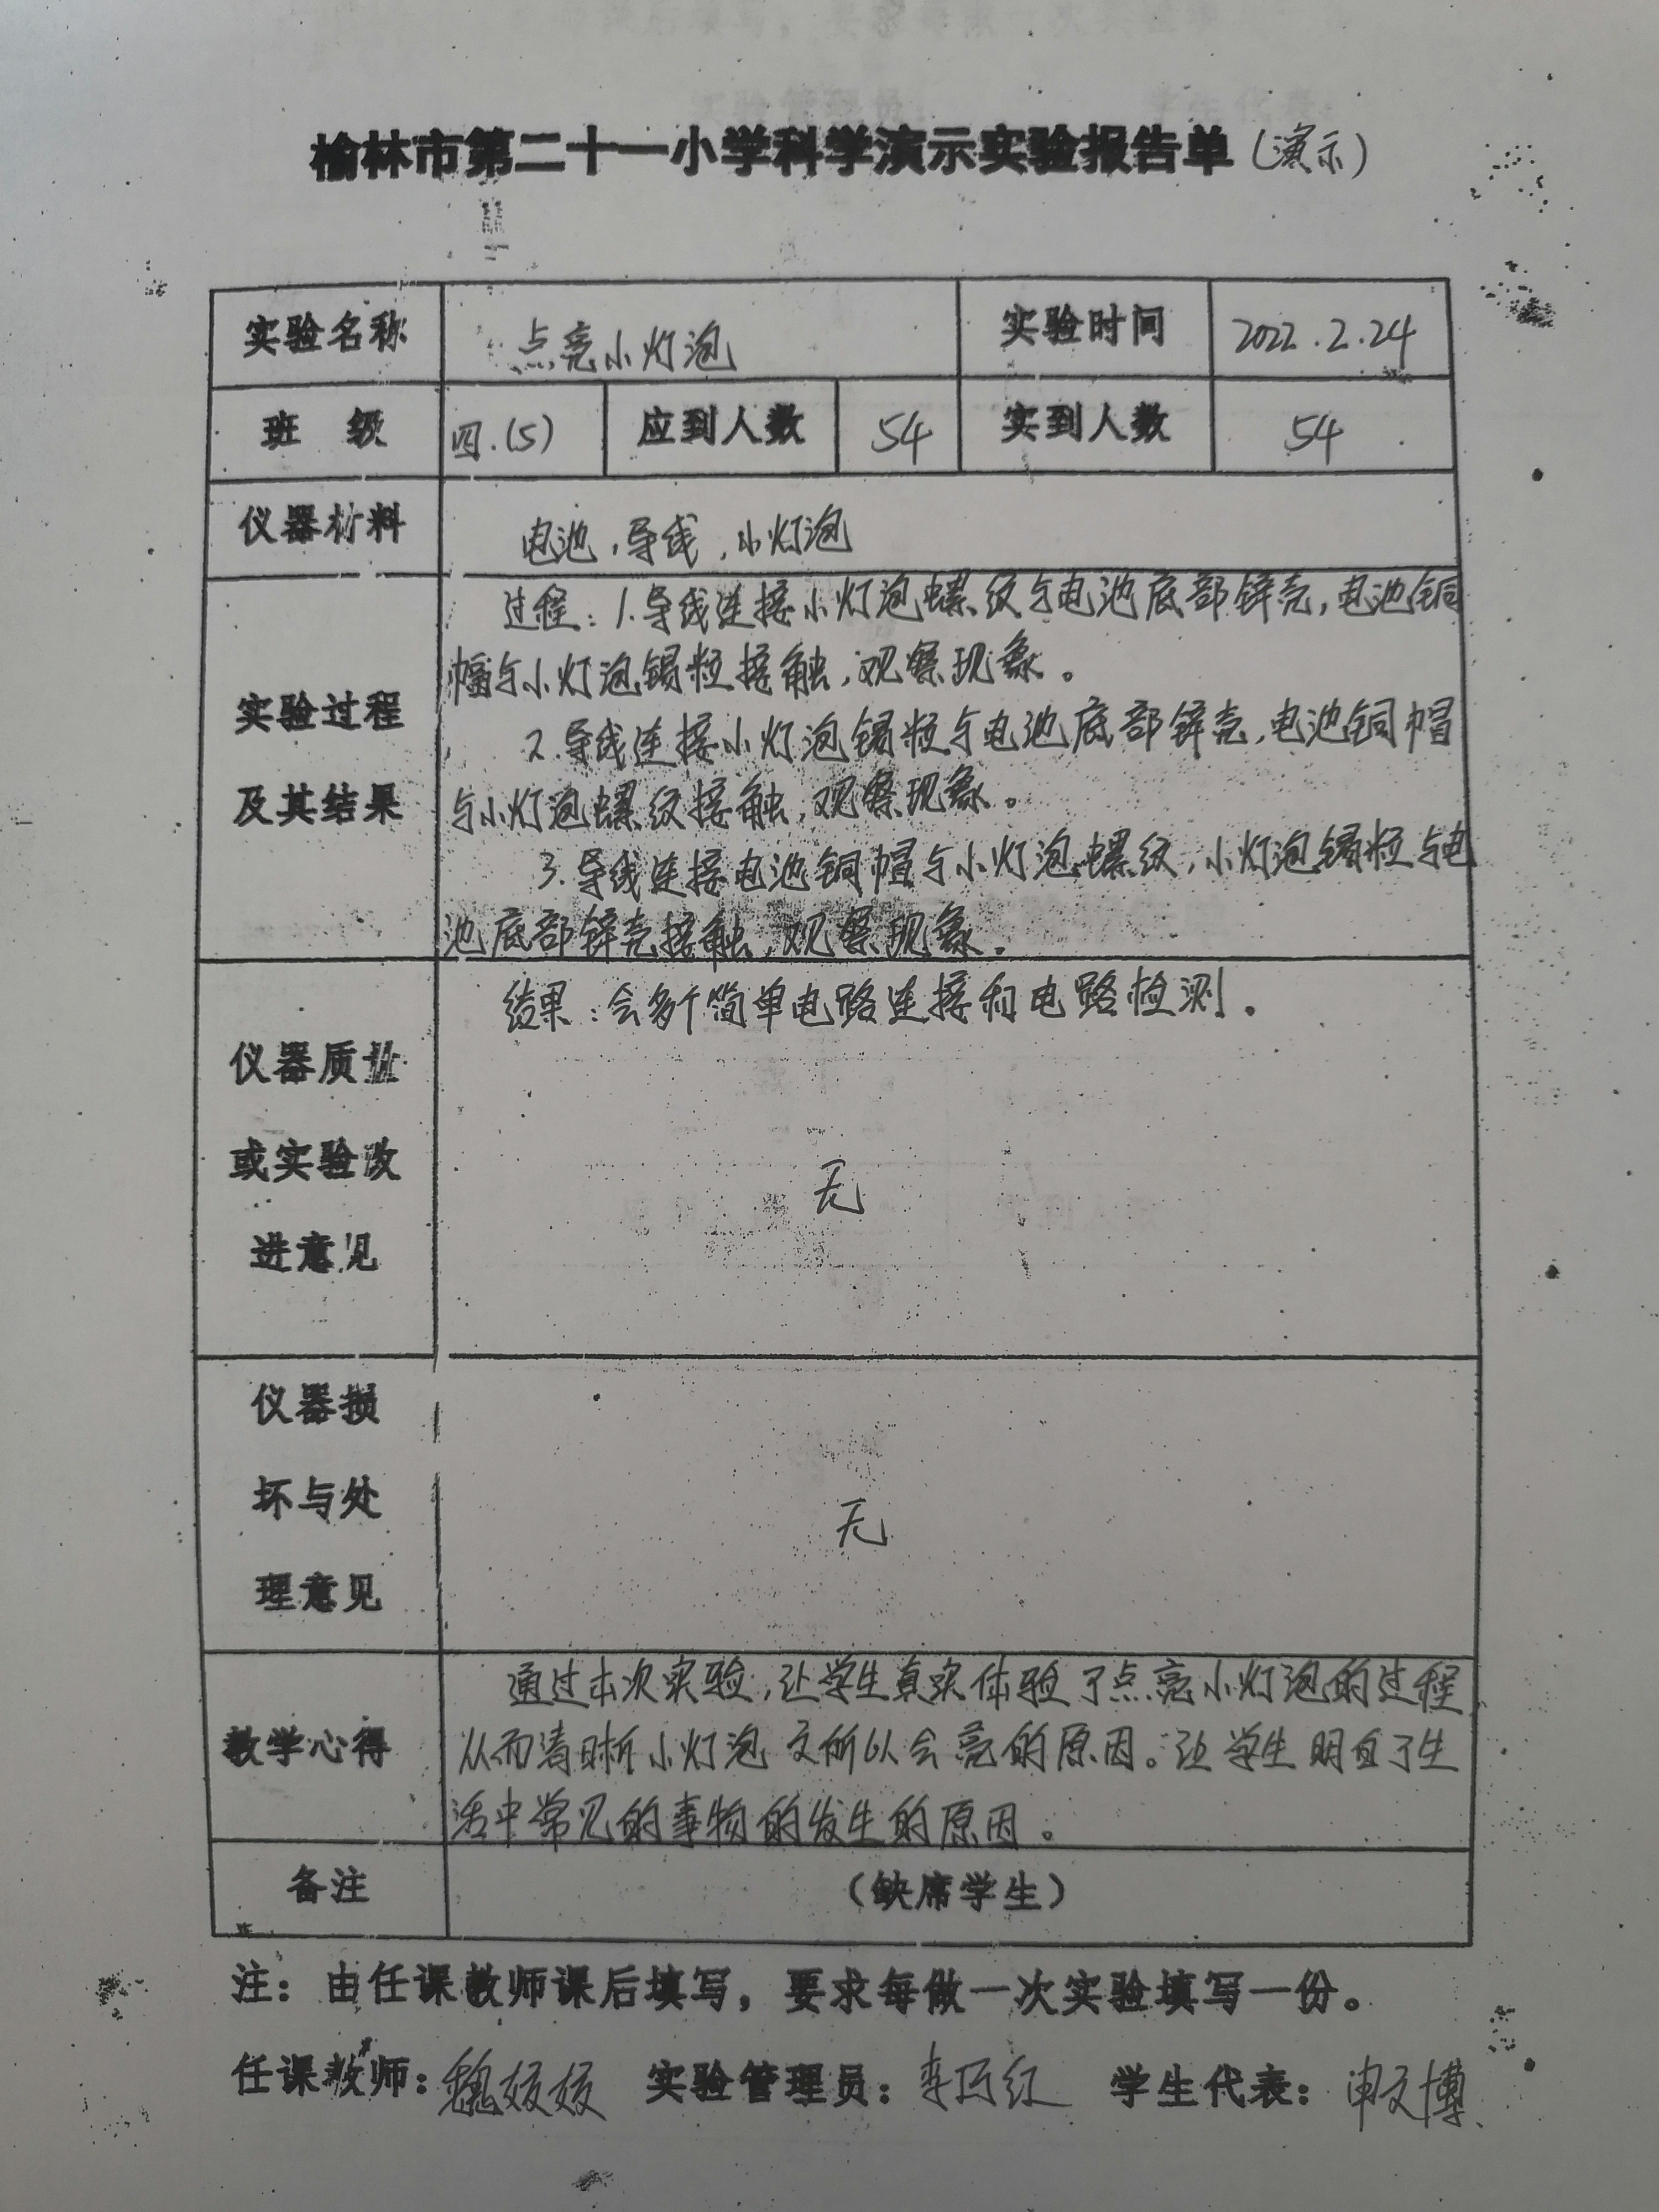 榆林市第二十一小学科学演示实验报告单(演示)
实验名称 点亮小灯泡 实验时间 2022.2.24
班 级 四.(5) 应到人数 54 实到人数 54
仪器材料 电池,导线,小灯泡
过程:1.导线连接小灯泡螺纹与电池底部锌壳,电池铜
帽与小灯泡锡粒接触,观察现象。
实验过程
2.导线连接小灯泡锡粒与电池底部锌壳,电池铜帽
及其结果
与小灯泡螺纹接触,观察现象。
3.导线连接电池铜帽与小灯泡螺纹,小灯泡锡粒与电
池底部锌壳接触,观察现象。
结果:会多个简单电路连接和电路检测。
仪器质量
或实验改
无
进意见
仪器损
坏与处
无
理意见
通过本次实验,让学生真实体验了点亮小灯泡的过程
教学心得
从而清晰小灯泡之所以会亮的原因。让学生明白了生
活中常见的事物的发生的原因。
备注 (缺席学生)
注:由任课教师课后填写,要求每做一次实验填写一份。
任课教师:魏姣姣 实验管理员:李巧红 学生代表:申文博